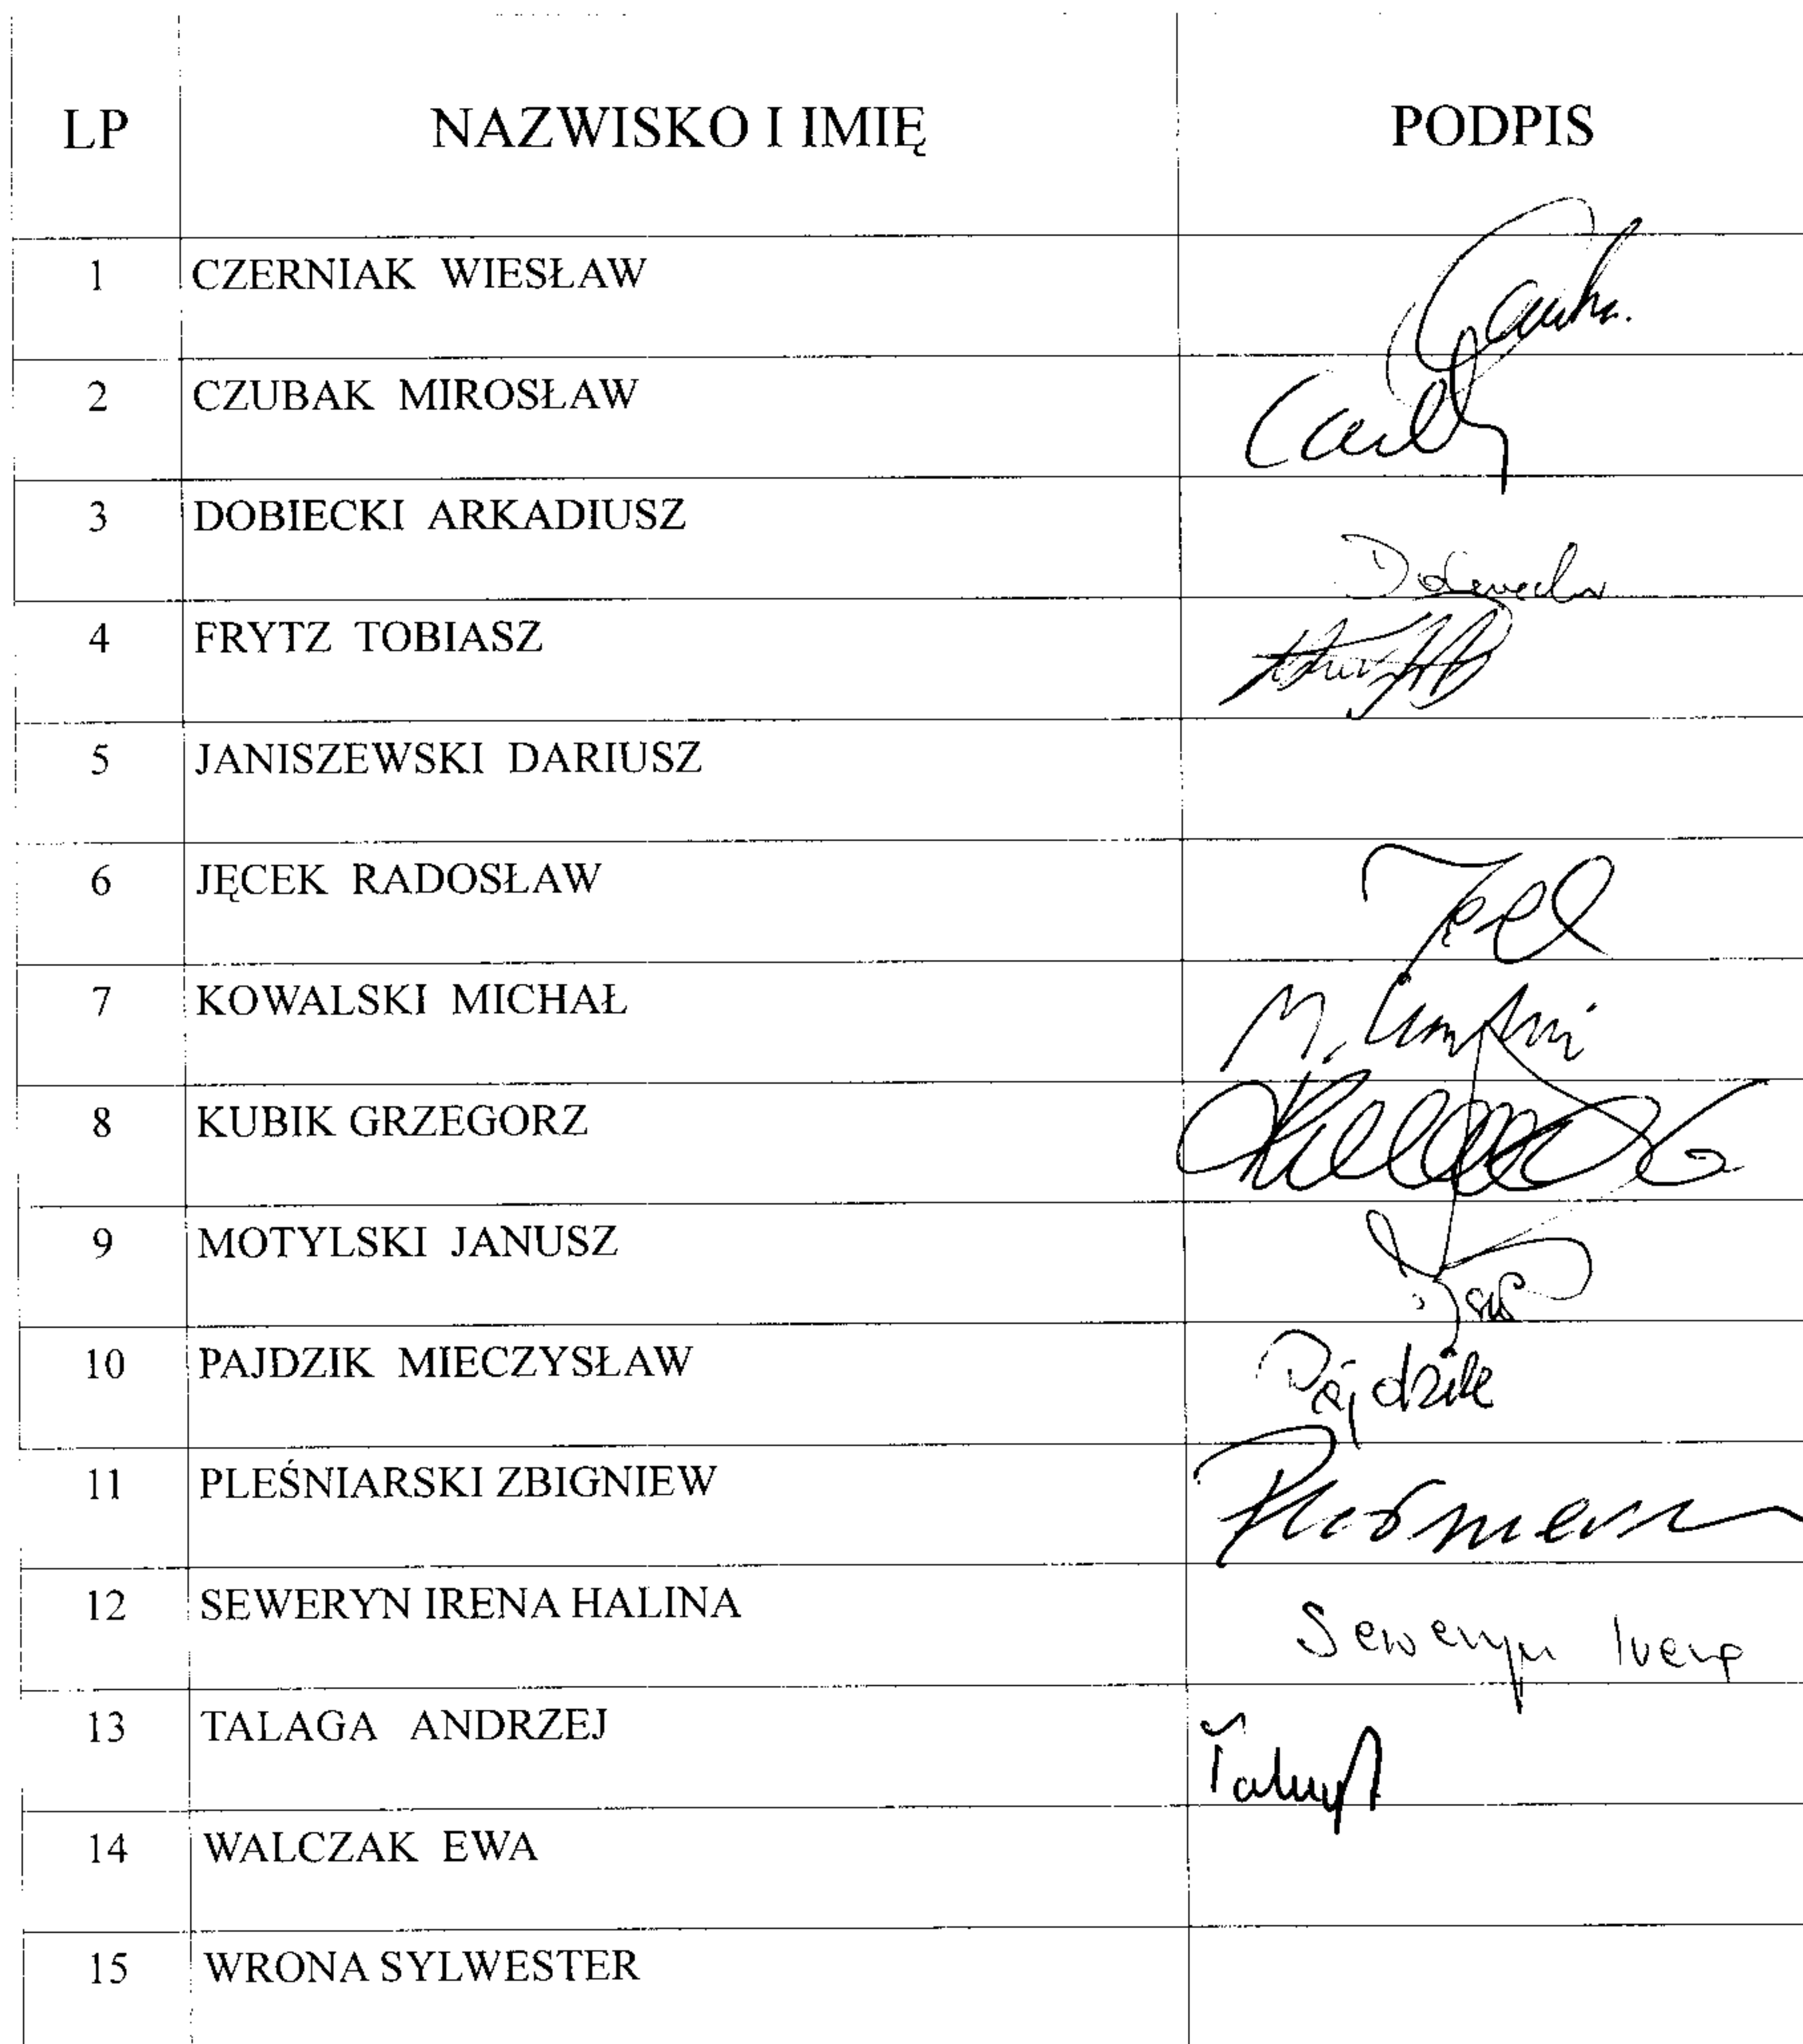 LP NAZWISKO I IMIĘ PODPIS
1 CZERNIAK WIESŁAW
2 CZUBAK MIROSŁAW
3 DOBIECKI ARKADIUSZ
4 FRYTZ TOBIASZ
5 JANISZEWSKI DARIUSZ
6 JĘCEK RADOSŁAW
7 KOWALSKI MICHAŁ M.
8 KUBIK GRZEGORZ
9 MOTYLSKI JANUSZ
10 PAJDZIK MIECZYSŁAW Pajdzik
11 PLEŚNIARSKI ZBIGNIEW
12 SEWERYN IRENA HALINA Seweryn Irena
13 TALAGA ANDRZEJ
14 WALCZAK EWA
15 WRONA SYLWESTER